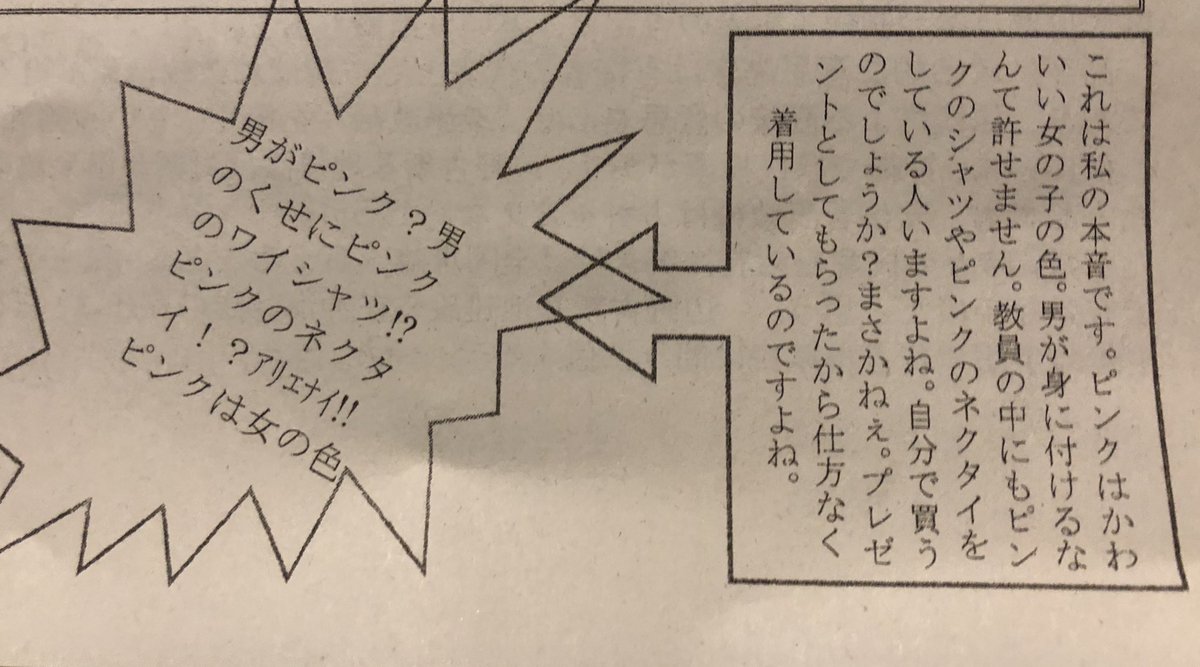 これは私の本音です。ピンクはかわ
いい女の子の色。男が身に付けるな
んて許せません。教員の中にもピン
クのシャツやピンクのネクタイを
している人いますよね。自分で買う
のでしょうか?まさかねぇ。プレゼ
ントとしてもらったから仕方なく
着用しているのですよね。
男がピンク?男
のくせにピンク
のワイシャツ!?
ピンクのネクタ
イ!?アリエナイ!!
ピンクは女の色